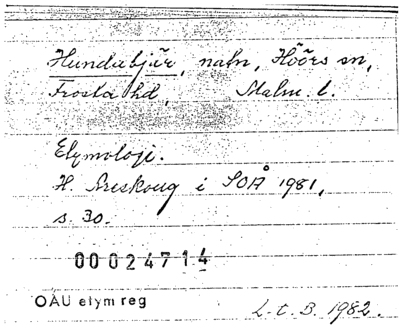 Hundabjär, natn, Höörs sn,
Frosta hd, Malm. l.
Etymologi.
H. Areskoug i SOÅ 1981,
s. 30.
00024714
OAU etym reg
L.t.B. 1982.